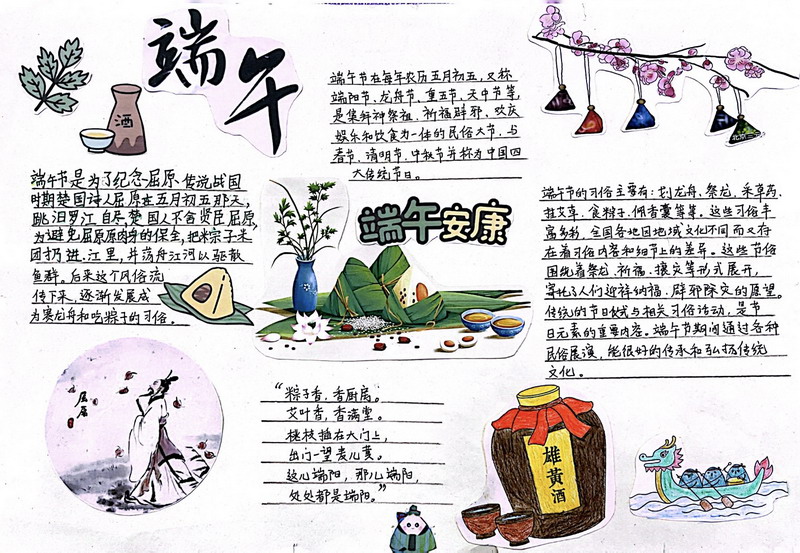 端午
酒
端午节是为了纪念屈原,传说战国
时期楚国诗人屈原在五月初五那天,
跳汨罗江自尽,楚国人不舍贤臣屈原,
为避免屈原原肉身的保全,把米粽子米
团扔进江里,并荡舟江河以驱散
鱼群。后来这个风俗流
传下来,逐渐发展成
为赛龙舟和吃粽子的习俗。
端午节在每年农历五月初五,又称
端阳节、龙舟节、重五节、天中节等,
是集拜神祭祖、祈福辟邪、欢庆
娱乐和饮食为一体的民俗大节,与
春节、清明节、中秋节并称为中国四
大传统节日。
端午安康
端午节的习俗主要有:划龙舟、祭龙、采草药、
挂艾草、食粽子、佩香囊等等。这些习俗丰
富多彩,全国各地因地域文化不同而又存
在着习俗内容和细节上的差异。这些节俗
围绕着祭龙、祈福、攘灾等形式展开,
寄托了人们迎祥纳福、辟邪除灾的愿望。
传统的节日仪式与相关习俗活动,是节
日元素的重要内容。端午节期间通过各种
民俗展演,能很好的传承和弘扬传统
文化。
屈原
“粽子香,香厨房。
艾叶香,香满堂。
桃枝插在大门上,
出门一望麦儿黄。
这儿端阳,那儿端阳,
处处都是端阳。”
雄黄酒